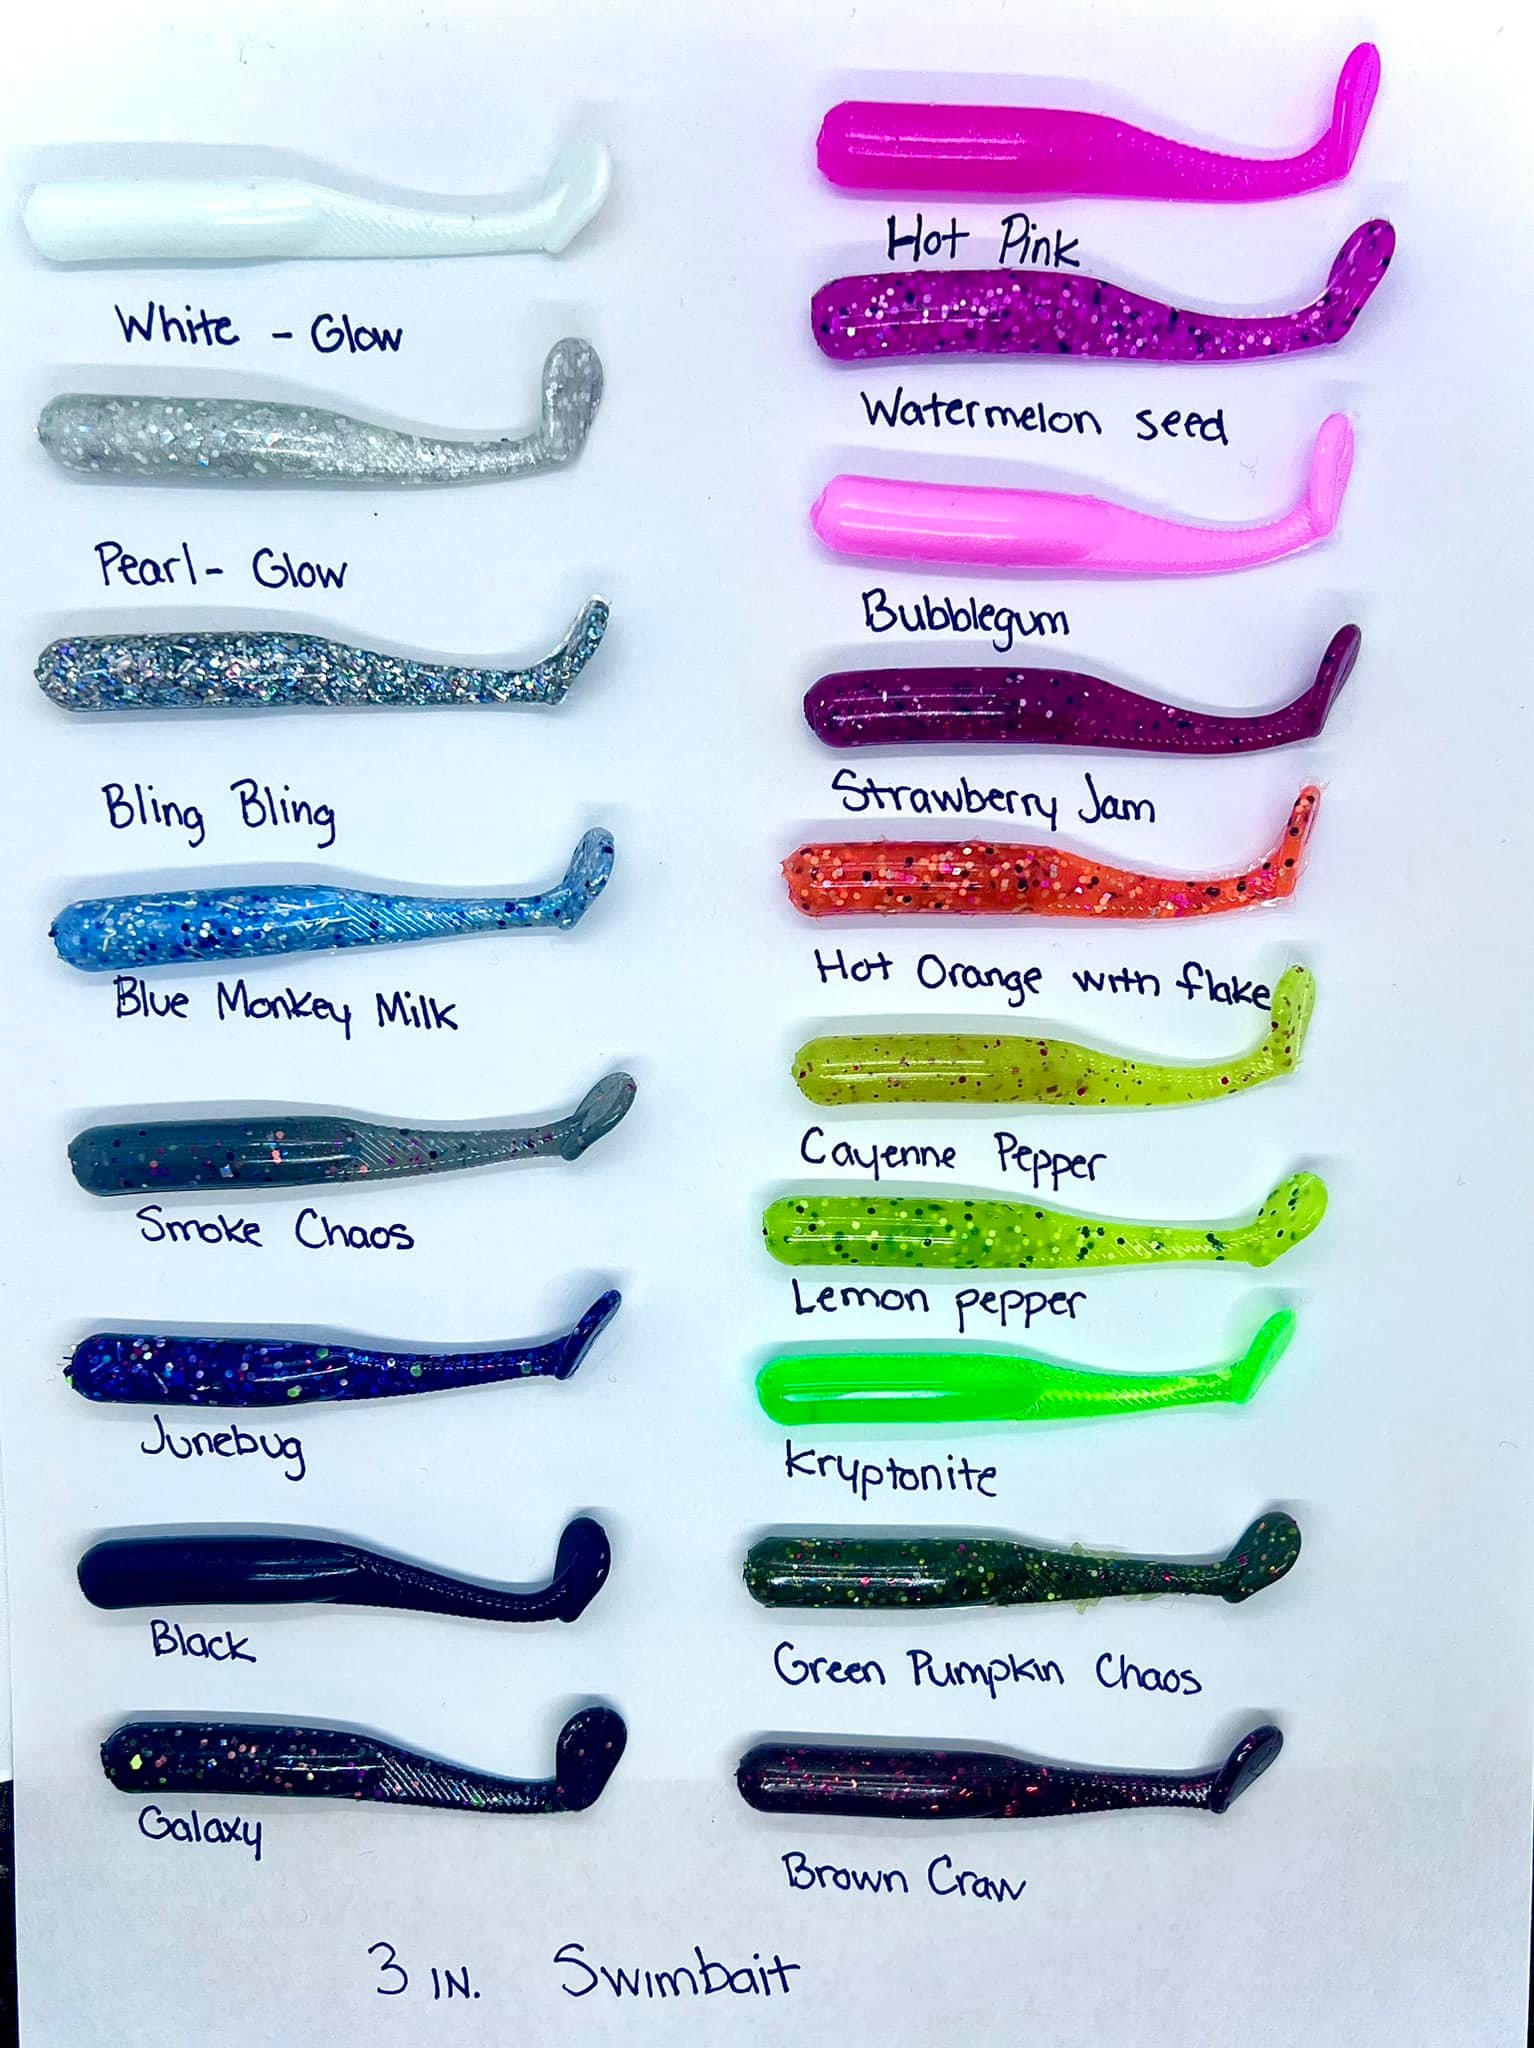 White - Glow
Pearl- Glow
Bling Bling
Blue Monkey Milk
Smoke Chaos
Junebug
Black
Galaxy
Hot Pink
Watermelon seed
Bubblegum
Strawberry Jam
Hot Orange with flake
Cayenne Pepper
Lemon pepper
Kryptonite
Green Pumpkin Chaos
Brown Craw
3 IN. Swimbait